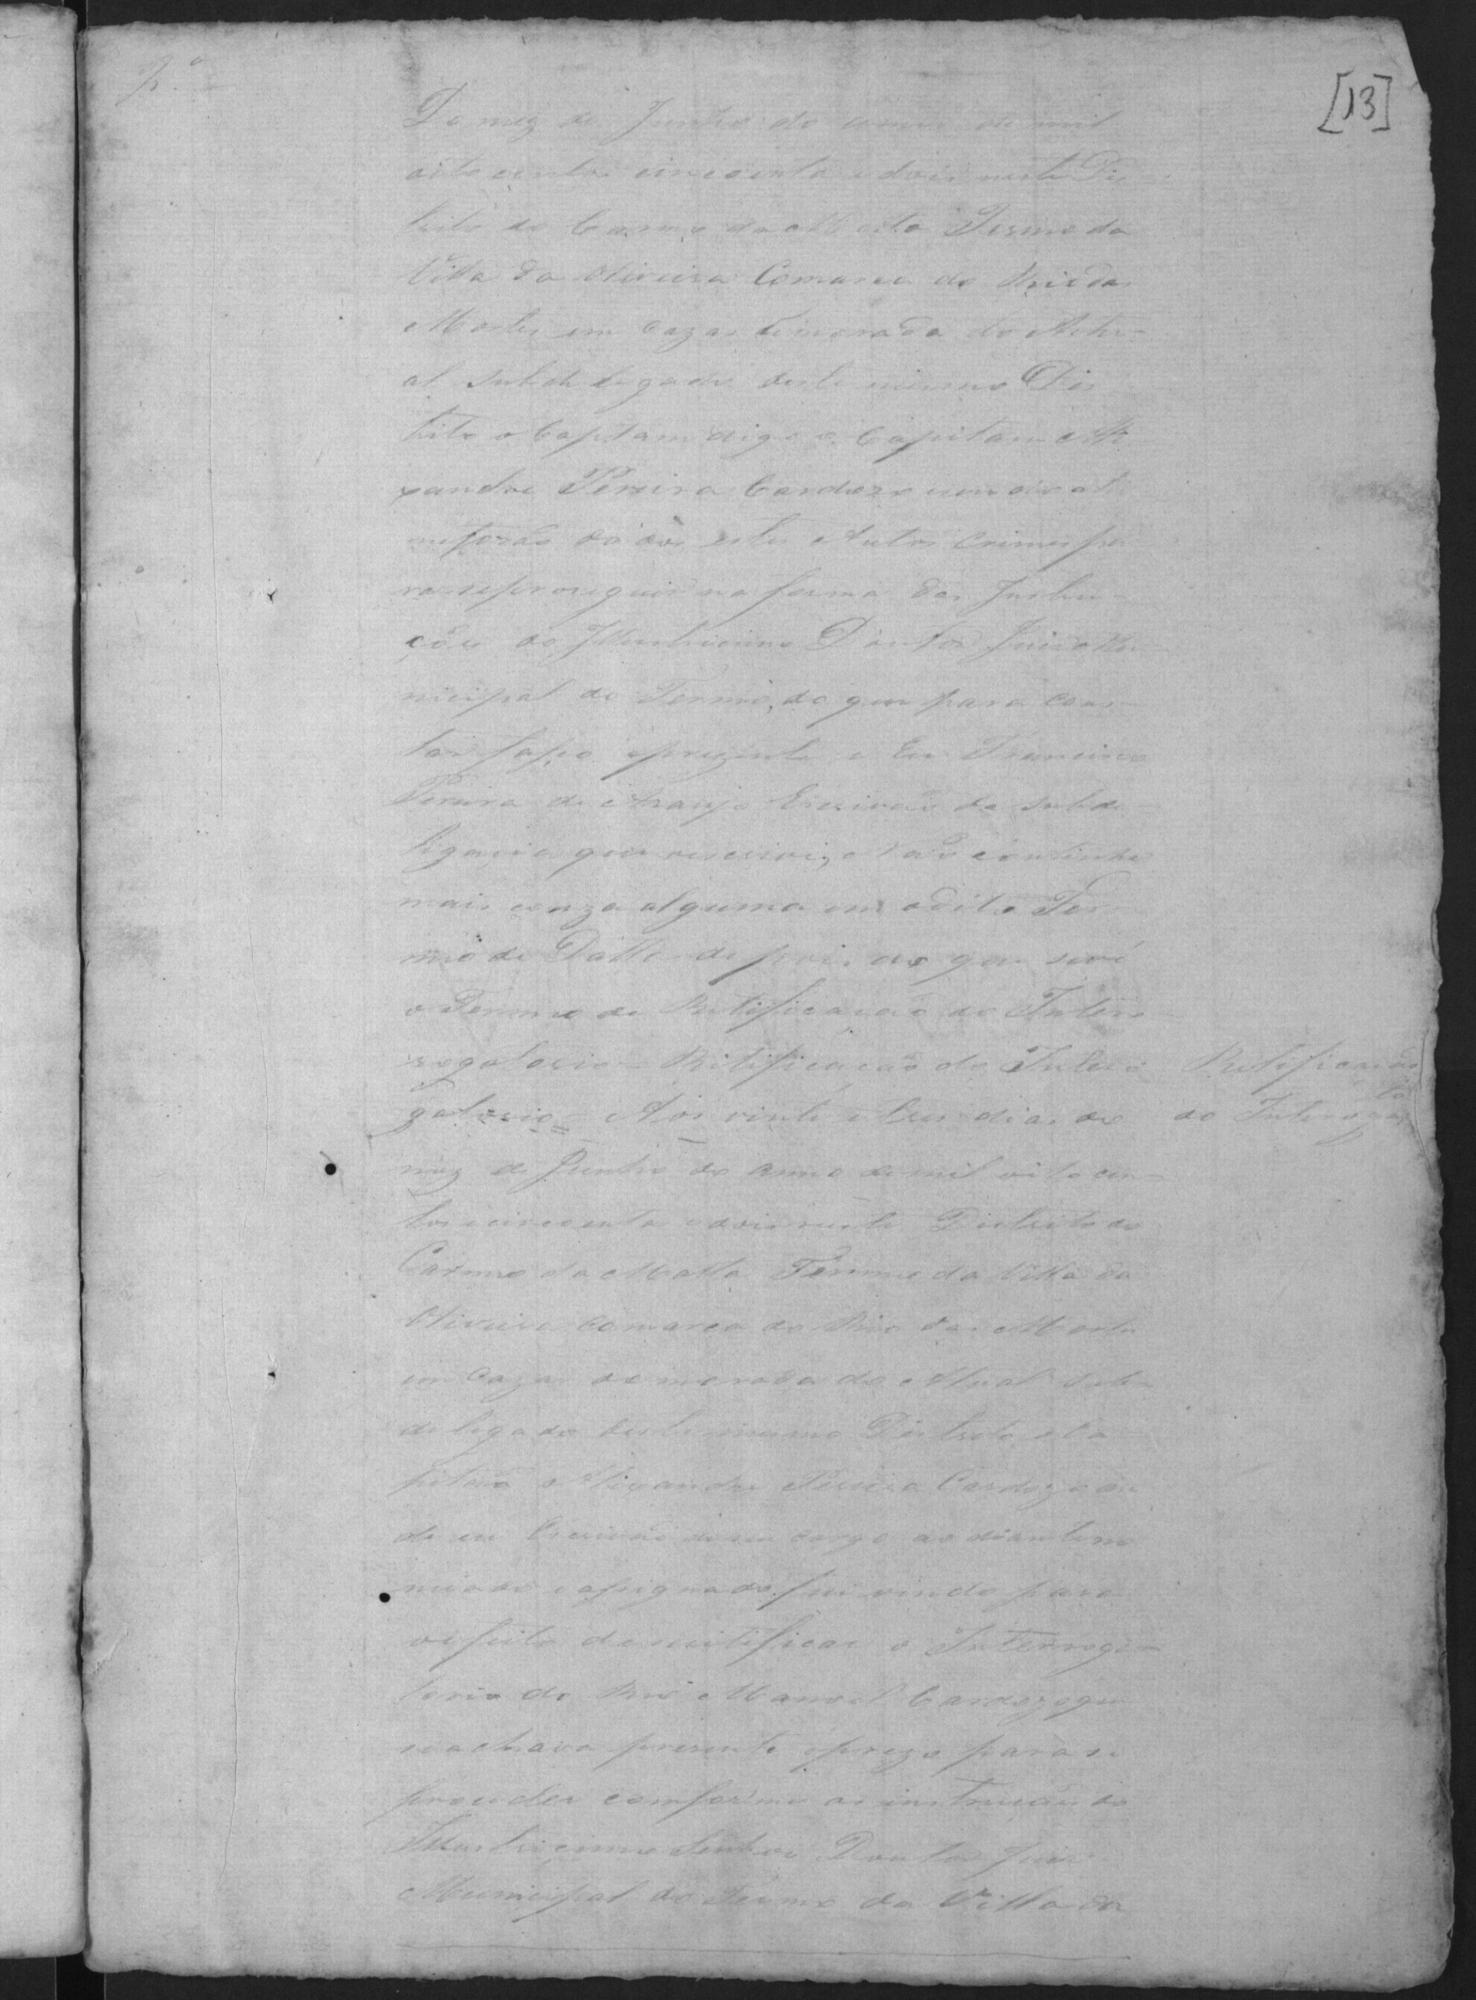 [13]
Do mez de Junho do anno de mil
oito centos cincoenta e dois neste Dis-
trito do Carmo da Matta Termo da
Villa da Oliveira Comarca do Rio das
Mortes em cazas de morada do Actu-
al Subdelegado deste mesmo Dis
trito o Capitam digo o Capitam Ale
xandre Pereira Cardozo
me forão da dos estes Autos Crimes pa
ra se proseguir na forma das Instru-
ções do Illustricimo Doutor Juiz Mu
nicipal do Termo, do que para cons-
tar faço o prezente e Eu Francisco
Pereira de Araujo Escrivão da Subde-
ligacia que o escrevi, e não continha
mais couza alguma em o dito Ter-
mo de Datta depois do que se vê
o Termo de Ratificação do Intero-
rogatorio = Ritificação do Intero
gatorio = Aos vinte e tres dias do
Retificação
do Interogato
mez de Junho do anno de mil oito cen-
tos cincoenta e dois neste Distrito do
Carmo da Matta Termo da Villa da
Oliveira Comarca do Rio das Mortes
em cazas de morada do Atual Sub-
deligado deste mesmo Distrito o Ca
pitão Alixandre Pereira Cardozo on
de eu Escrivão de seu cargo ao diante no
miado e assignado fui vindo para
o efeito de reitificar o Interroga-
torio do Reo Manoel Cardozo que
se achava prezente e prezo para se
proceder comforme as instrucões do
Illustricimo Senhor Doutor Juiz
Municipal do Termo da Villa da